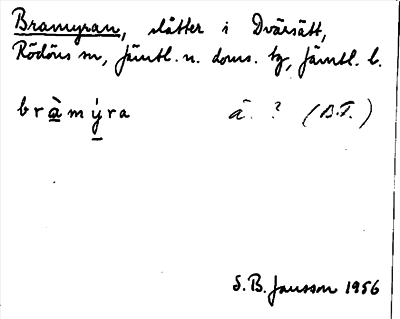 Bramyran, slåtter i Dvärsätt,
Rödöns sn, Jämtl. n. doms. tg, Jämtl. l.
bràmýra â. ? (B.F.)
S. B. Jansson 1956